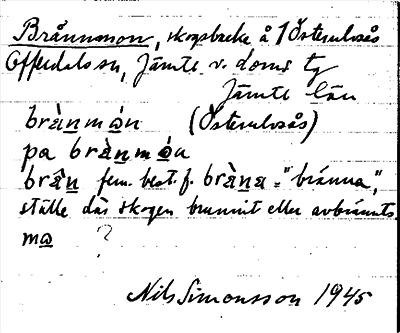 Brånnmon, skogsbacke å 1 Österulvsås
Offerdals sn, Jämtl v. doms tg
Jämtl län
brànmán (Österulvsås)
pa brànmóu
brân fem. best. f. bràna = "bränna",
ställe där skogen brunnit eller avbränts.
mo ?
Nils Simonsson 1945